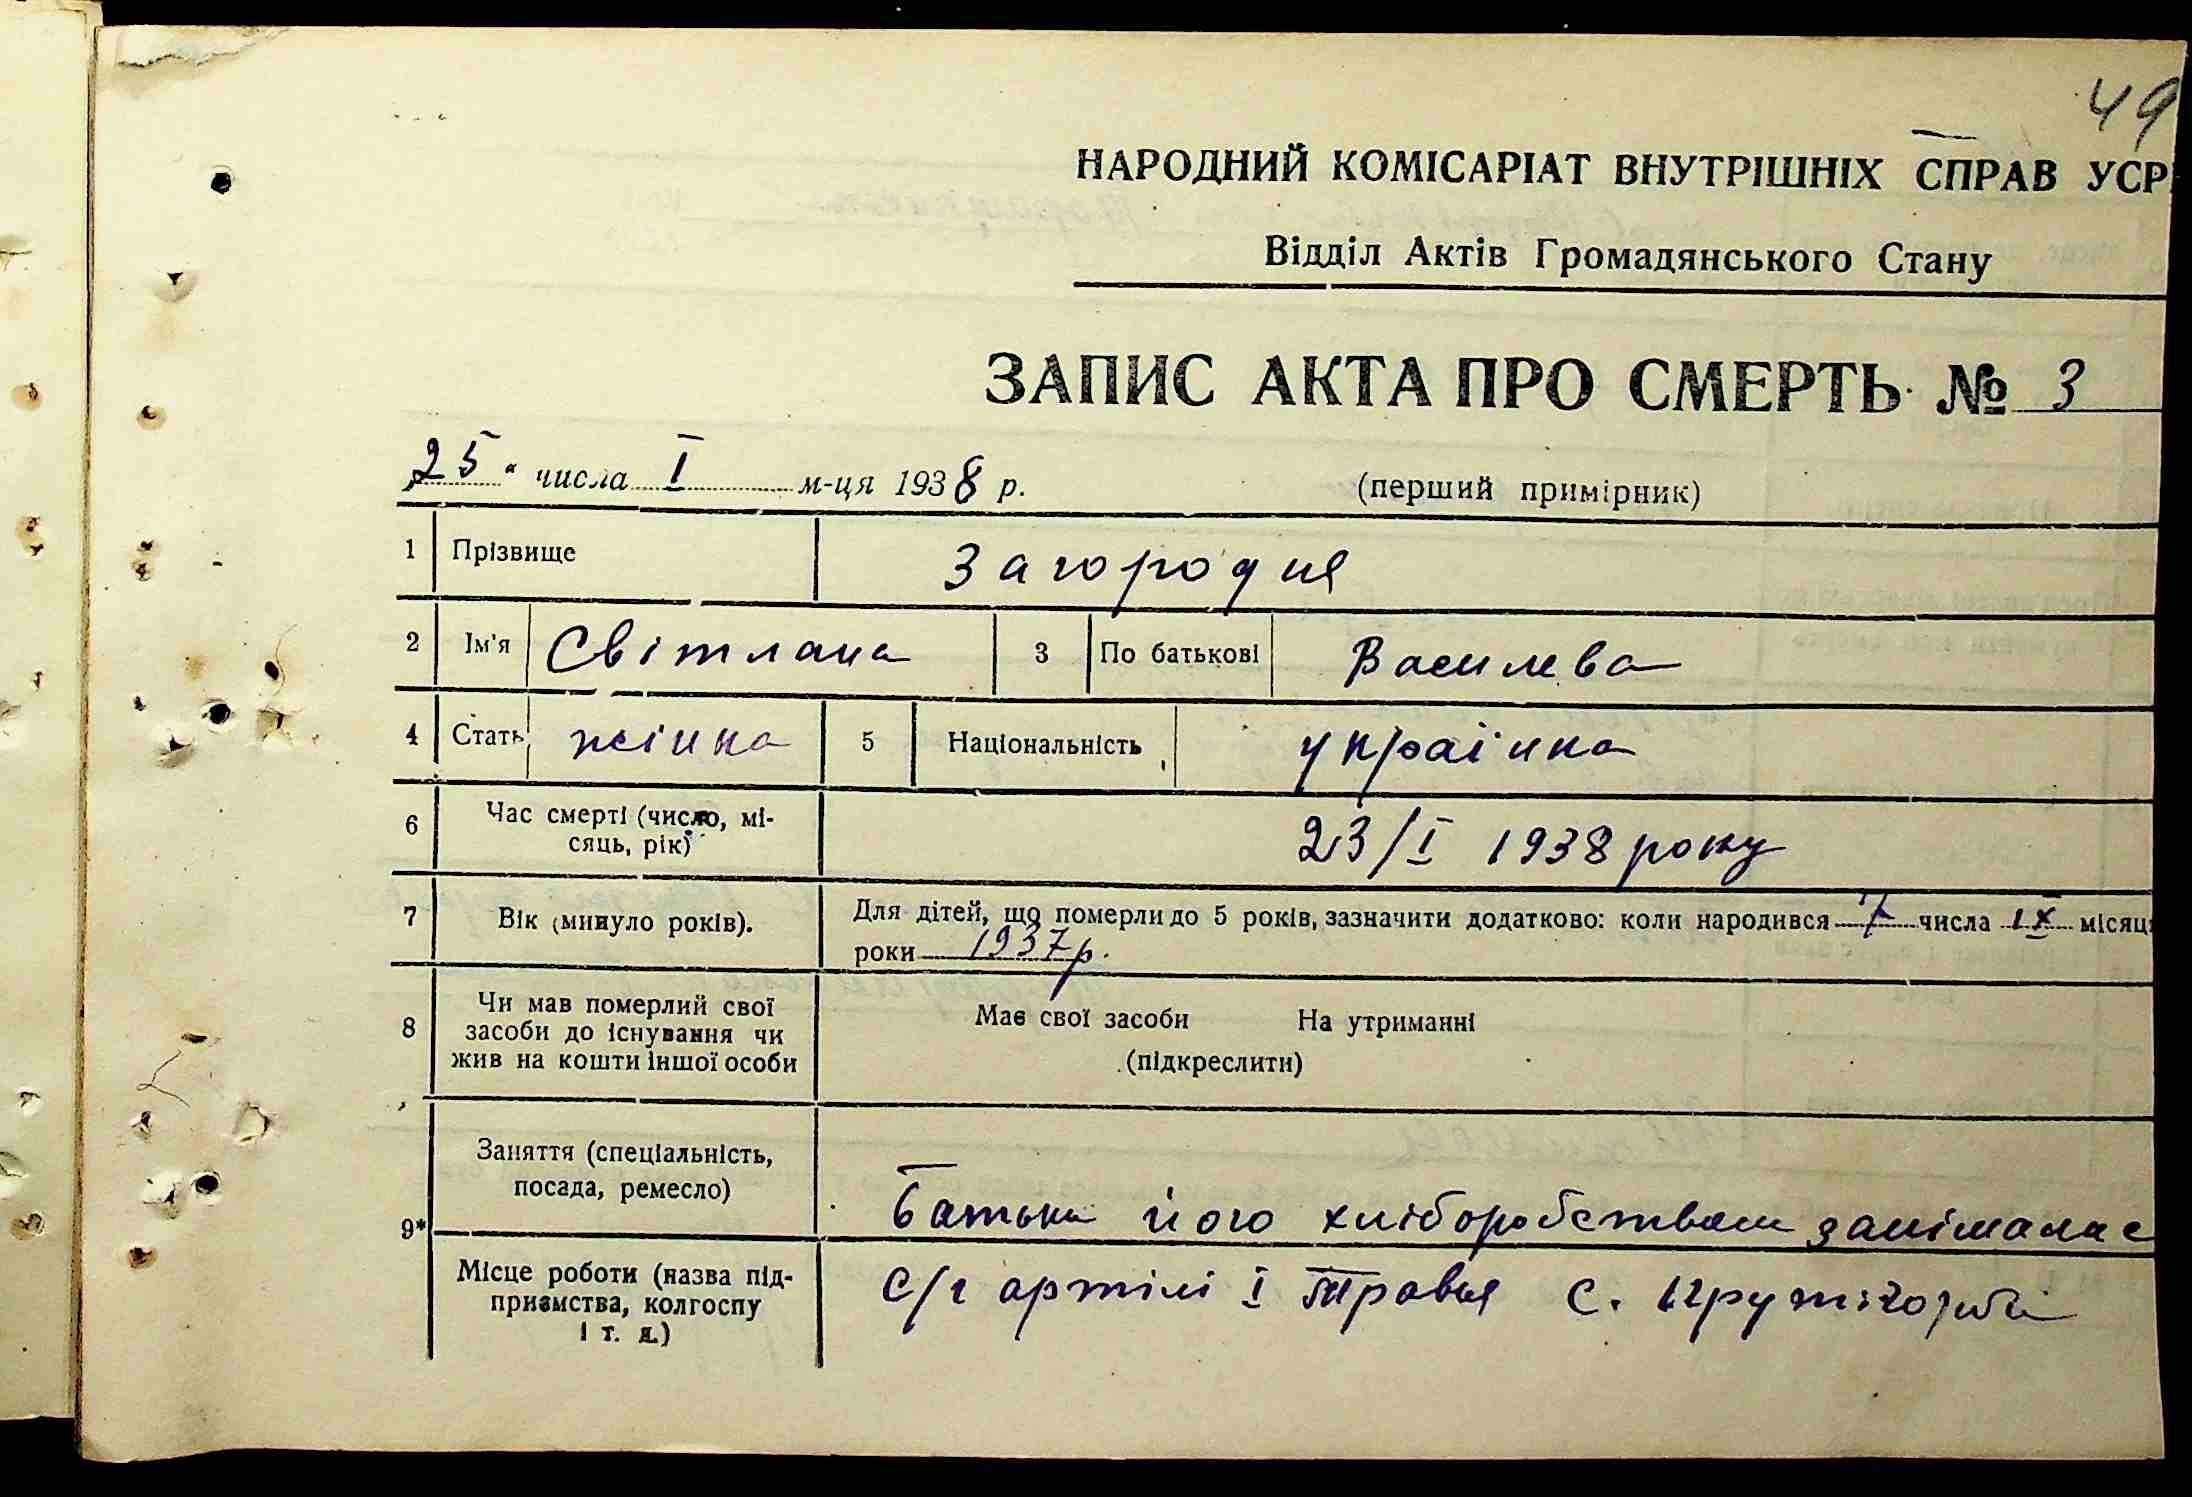 49
НАРОДНИЙ КОМІСАРІАТ ВНУТРІШНІХ СПРАВ УСР
Відділ Актів Громадянського Стану
ЗАПИС АКТА ПРО СМЕРТЬ № 3
„25“ числа I м-ця 1938 р. (перший примірник)
1 Прізвище Загородня
2 Ім'я Світлана 3 По батькові Василева
4 Стать жінка 5 Національність українка
6 Час смерті (число, мі-
сяць, рік) 23/I 1938 року
7 Вік (минуло років). Для дітей, що померли до 5 років, зазначити додатково: коли народився 7 числа IX місяц
роки 1937 р.
8 Чи мав померлий свої
засоби до існування чи
жив на кошти іншої особи
Має свої засоби На утриманні
(підкреслити)
9* Заняття (спеціальність,
посада, ремесло) Батьки його хліборобством занімалас
Місце роботи (назва під-
приємства, колгоспу
і т. д.)
С/г артілі I Травня с. Крутігорби